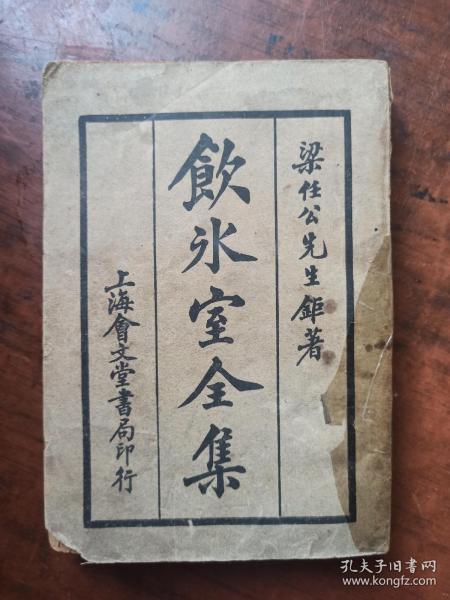 梁任公先生鉅著
飲氷室全集
上海會文堂書局印行
孔夫子旧书网
www.kongfz.com